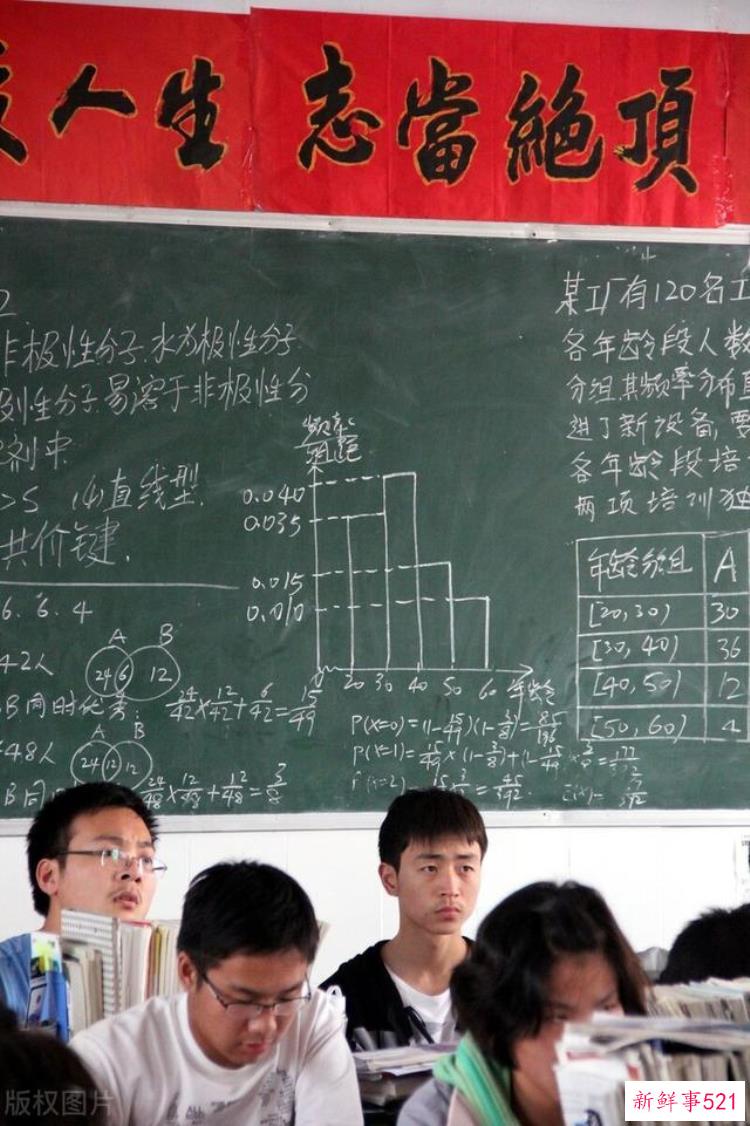 人生 志當絶頂
非极性分子.水为极性分子
极性分子.易溶于非极性分
剂中
>5 (4)直线型.
共价键.
6.6.4
A B
24 6 12
42人
B同时优秀: 24/42×12/42+6/42=15/49
48人
A B
24 12 12
B同
24/48×12/48+12/48=3/8
频率
组距
0.040
0.035
0.015
0.010
0 20 30 40 50 60 年龄
P(X=0)=(1-15/49)(1-3/8)=85/196
P(X=1)=15/49×(1-3/8)+(1-15/49)×3/8=
P(X=2)=15/49×3/8=45/392
某工厂有120名工
各年龄段人数
分组.其频率分布直
进了新设备,要
各年龄段培
两项培训独
年龄分组 A
[20,30) 30
[30,40) 36
[40,50) 12
[50,60) 4
版权图片
新鲜事521